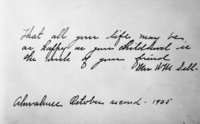 That all your life may be
as happy as your childhood is
the wish of your friend
Mrs
October second - 1905